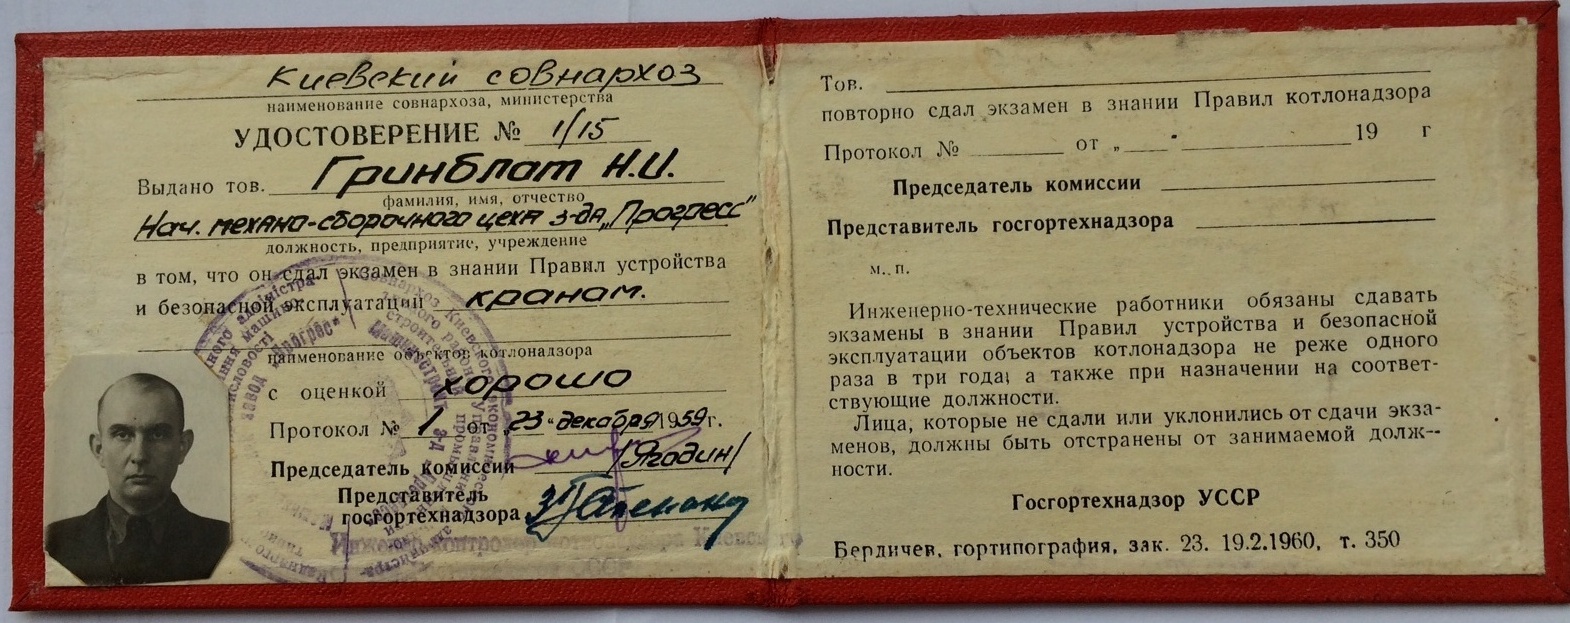 Киевский совнархоз
наименование совнархоза, министерства
УДОСТОВЕРЕНИЕ № 1/15
Выдано тов. Гринблат Н.И.
фамилия, имя, отчество
Нач. механо-сборочного цеха з-да „Прогресс"
должность, предприятие, учреждение
в том, что он сдал экзамен в знании Правил устройства
и безопасной эксплуатации кранам.
наименование объектов котлонадзора
с оценкой хорошо
Протокол № 1 от „23" декабря 1959 г.
Председатель комиссии /Ягодин/
Представитель
госгортехнадзора
Тов.
повторно сдал экзамен в знании Правил котлонадзора
Протокол № от „ - 19 г
Председатель комиссии
Представитель госгортехнадзора
м. п.
Инженерно-технические работники обязаны сдавать
экзамены в знании Правил устройства и безопасной
эксплуатации объектов котлонадзора не реже одного
раза в три года; а также при назначении на соответ-
ствующие должности.
Лица, которые не сдали или уклонились от сдачи экза-
менов, должны быть отстранены от занимаемой долж--
ности.
Госгортехнадзор УССР
Бердичев, гортипография, зак. 23. 19.2.1960, т. 350